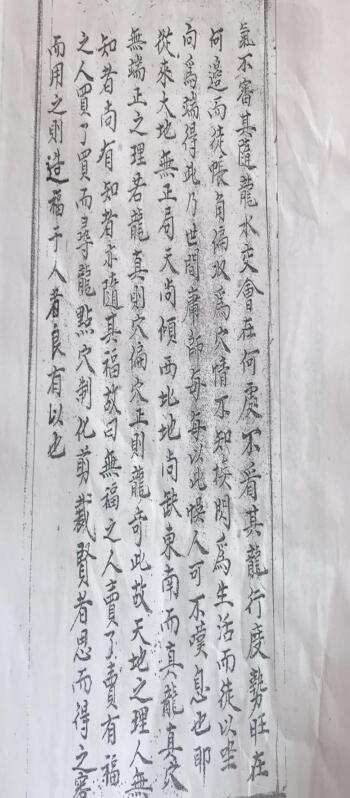 氣不審其隨龍水交會在何處不看其龍行度勢旺在
何邊而徒帳角偏放為穴情不知挨閃為生活而徒以坐
向為端得此乃世間庸師每每以此悮人可不嘆息也即
從來大地無正局天尚傾西北地尚缺東南而真龍真穴
無端正之理若龍真則穴偏穴正則龍奇此故天地之理人無
知者尚有知者亦隨其福故曰無福之人賣了賣有福
之人買了買而尋龍點穴制化剪裁賢者思而得之審
而用之則造福于人者良有以也